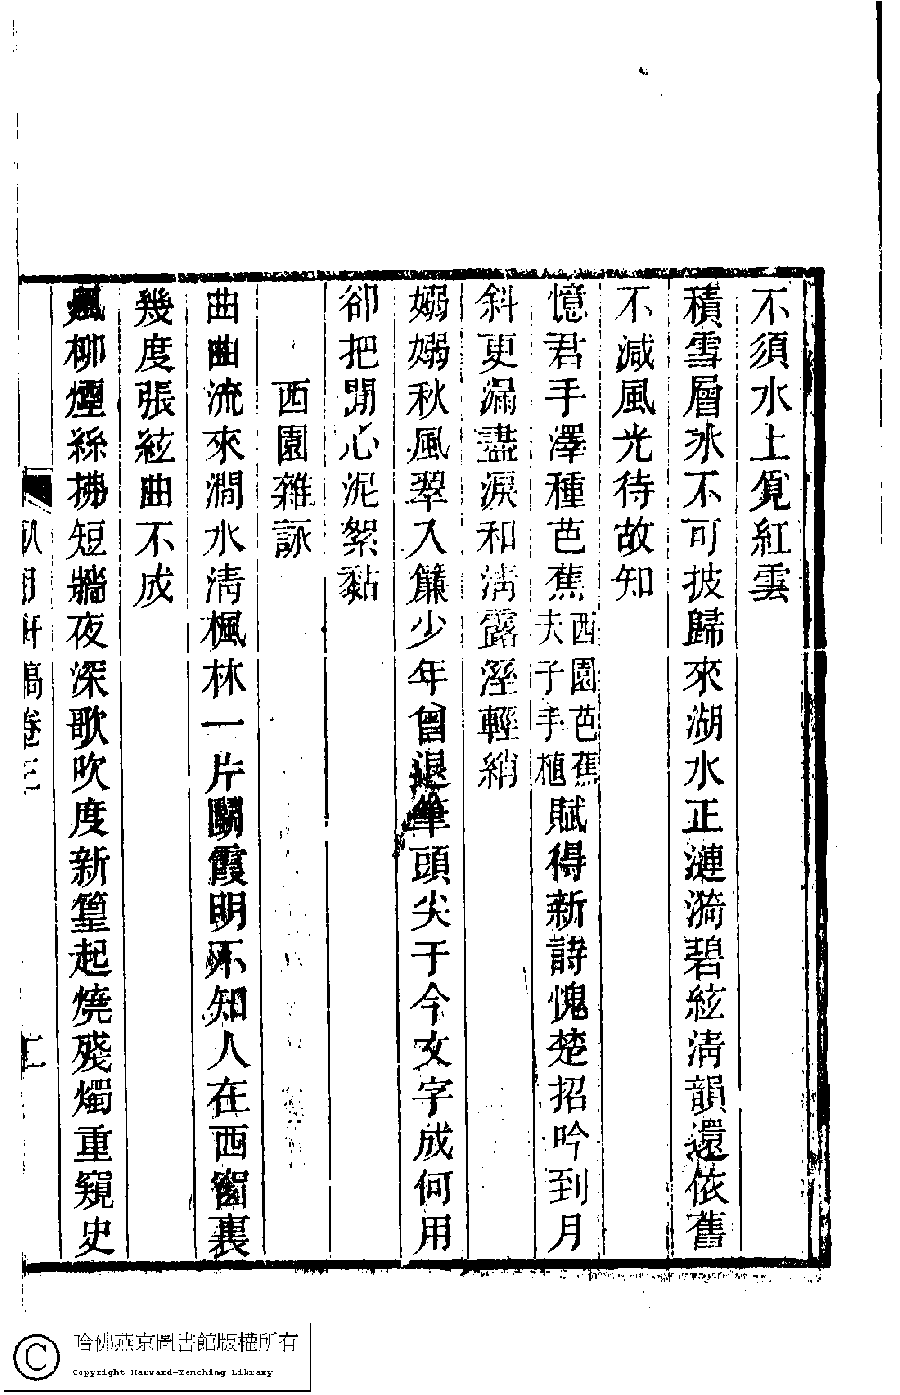 不須水上覓紅雲
積雪層冰不可披歸來湖水正漣漪碧絃清韻還依舊
不減風光待故知
憶君手澤種芭蕉西園芭蕉夫子手植賦得新詩愧楚招吟到月
斜更漏盡淚和淸露溼輕綃
嫋嫋秋風翠入簾少年曾退筆頭尖于今文字成何用
卻把閒心泥絮黏
西園雜詠
曲曲流來澗水淸楓林一片鬭霞明不知人在西窗裏
幾度張絃曲不成
風柳煙絲拂短牆夜深歌吹度新篁起燒殘燭重窺史
軒稿卷三
哈佛燕京圖書館版權所有
Copyright Harvard-Yenching Library